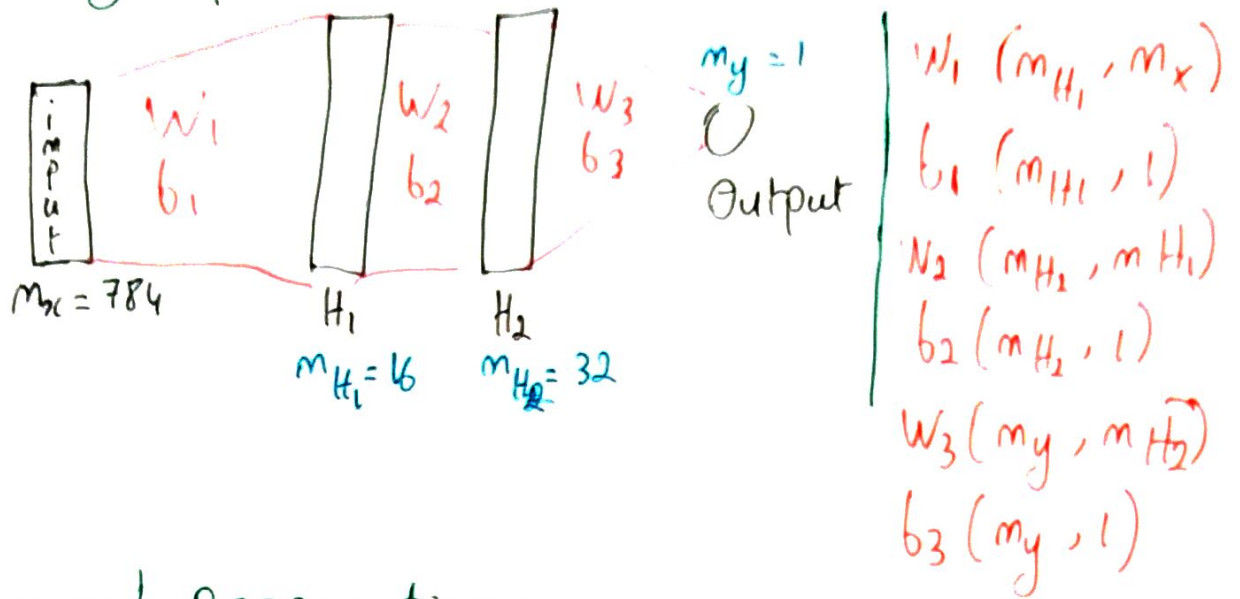 input
W₁
b₁
W₂
b₂
W₃
b₃
n_y = 1
Output
n_x = 784
H₁
n_H₁ = 16
H₂
n_H₂ = 32
W₁ (n_H₁, n_x)
b₁ (n_H₁, 1)
W₂ (n_H₂, n_H₁)
b₂ (n_H₂, 1)
W₃ (n_y, n_H₂)
b₃ (n_y, 1)